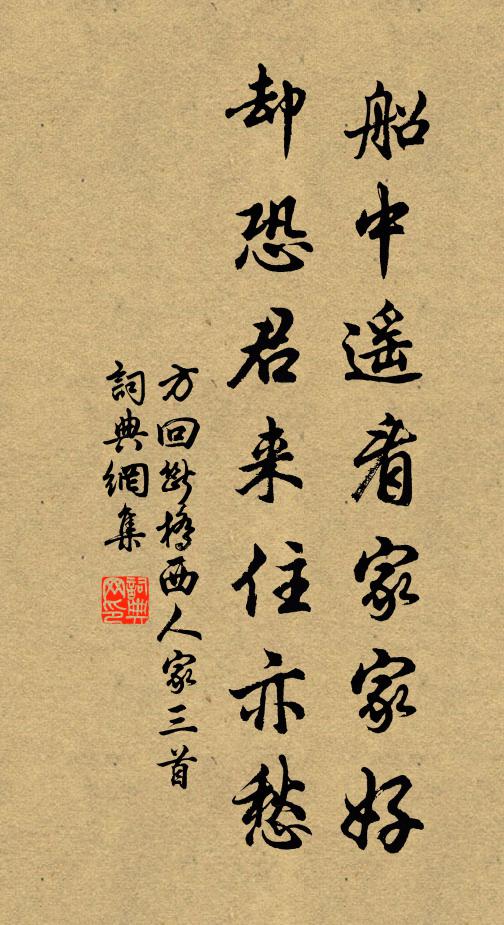 船中遥看家家好
却恐君来住亦愁
方回断橋西人家三首
詞典網集
詞典網印